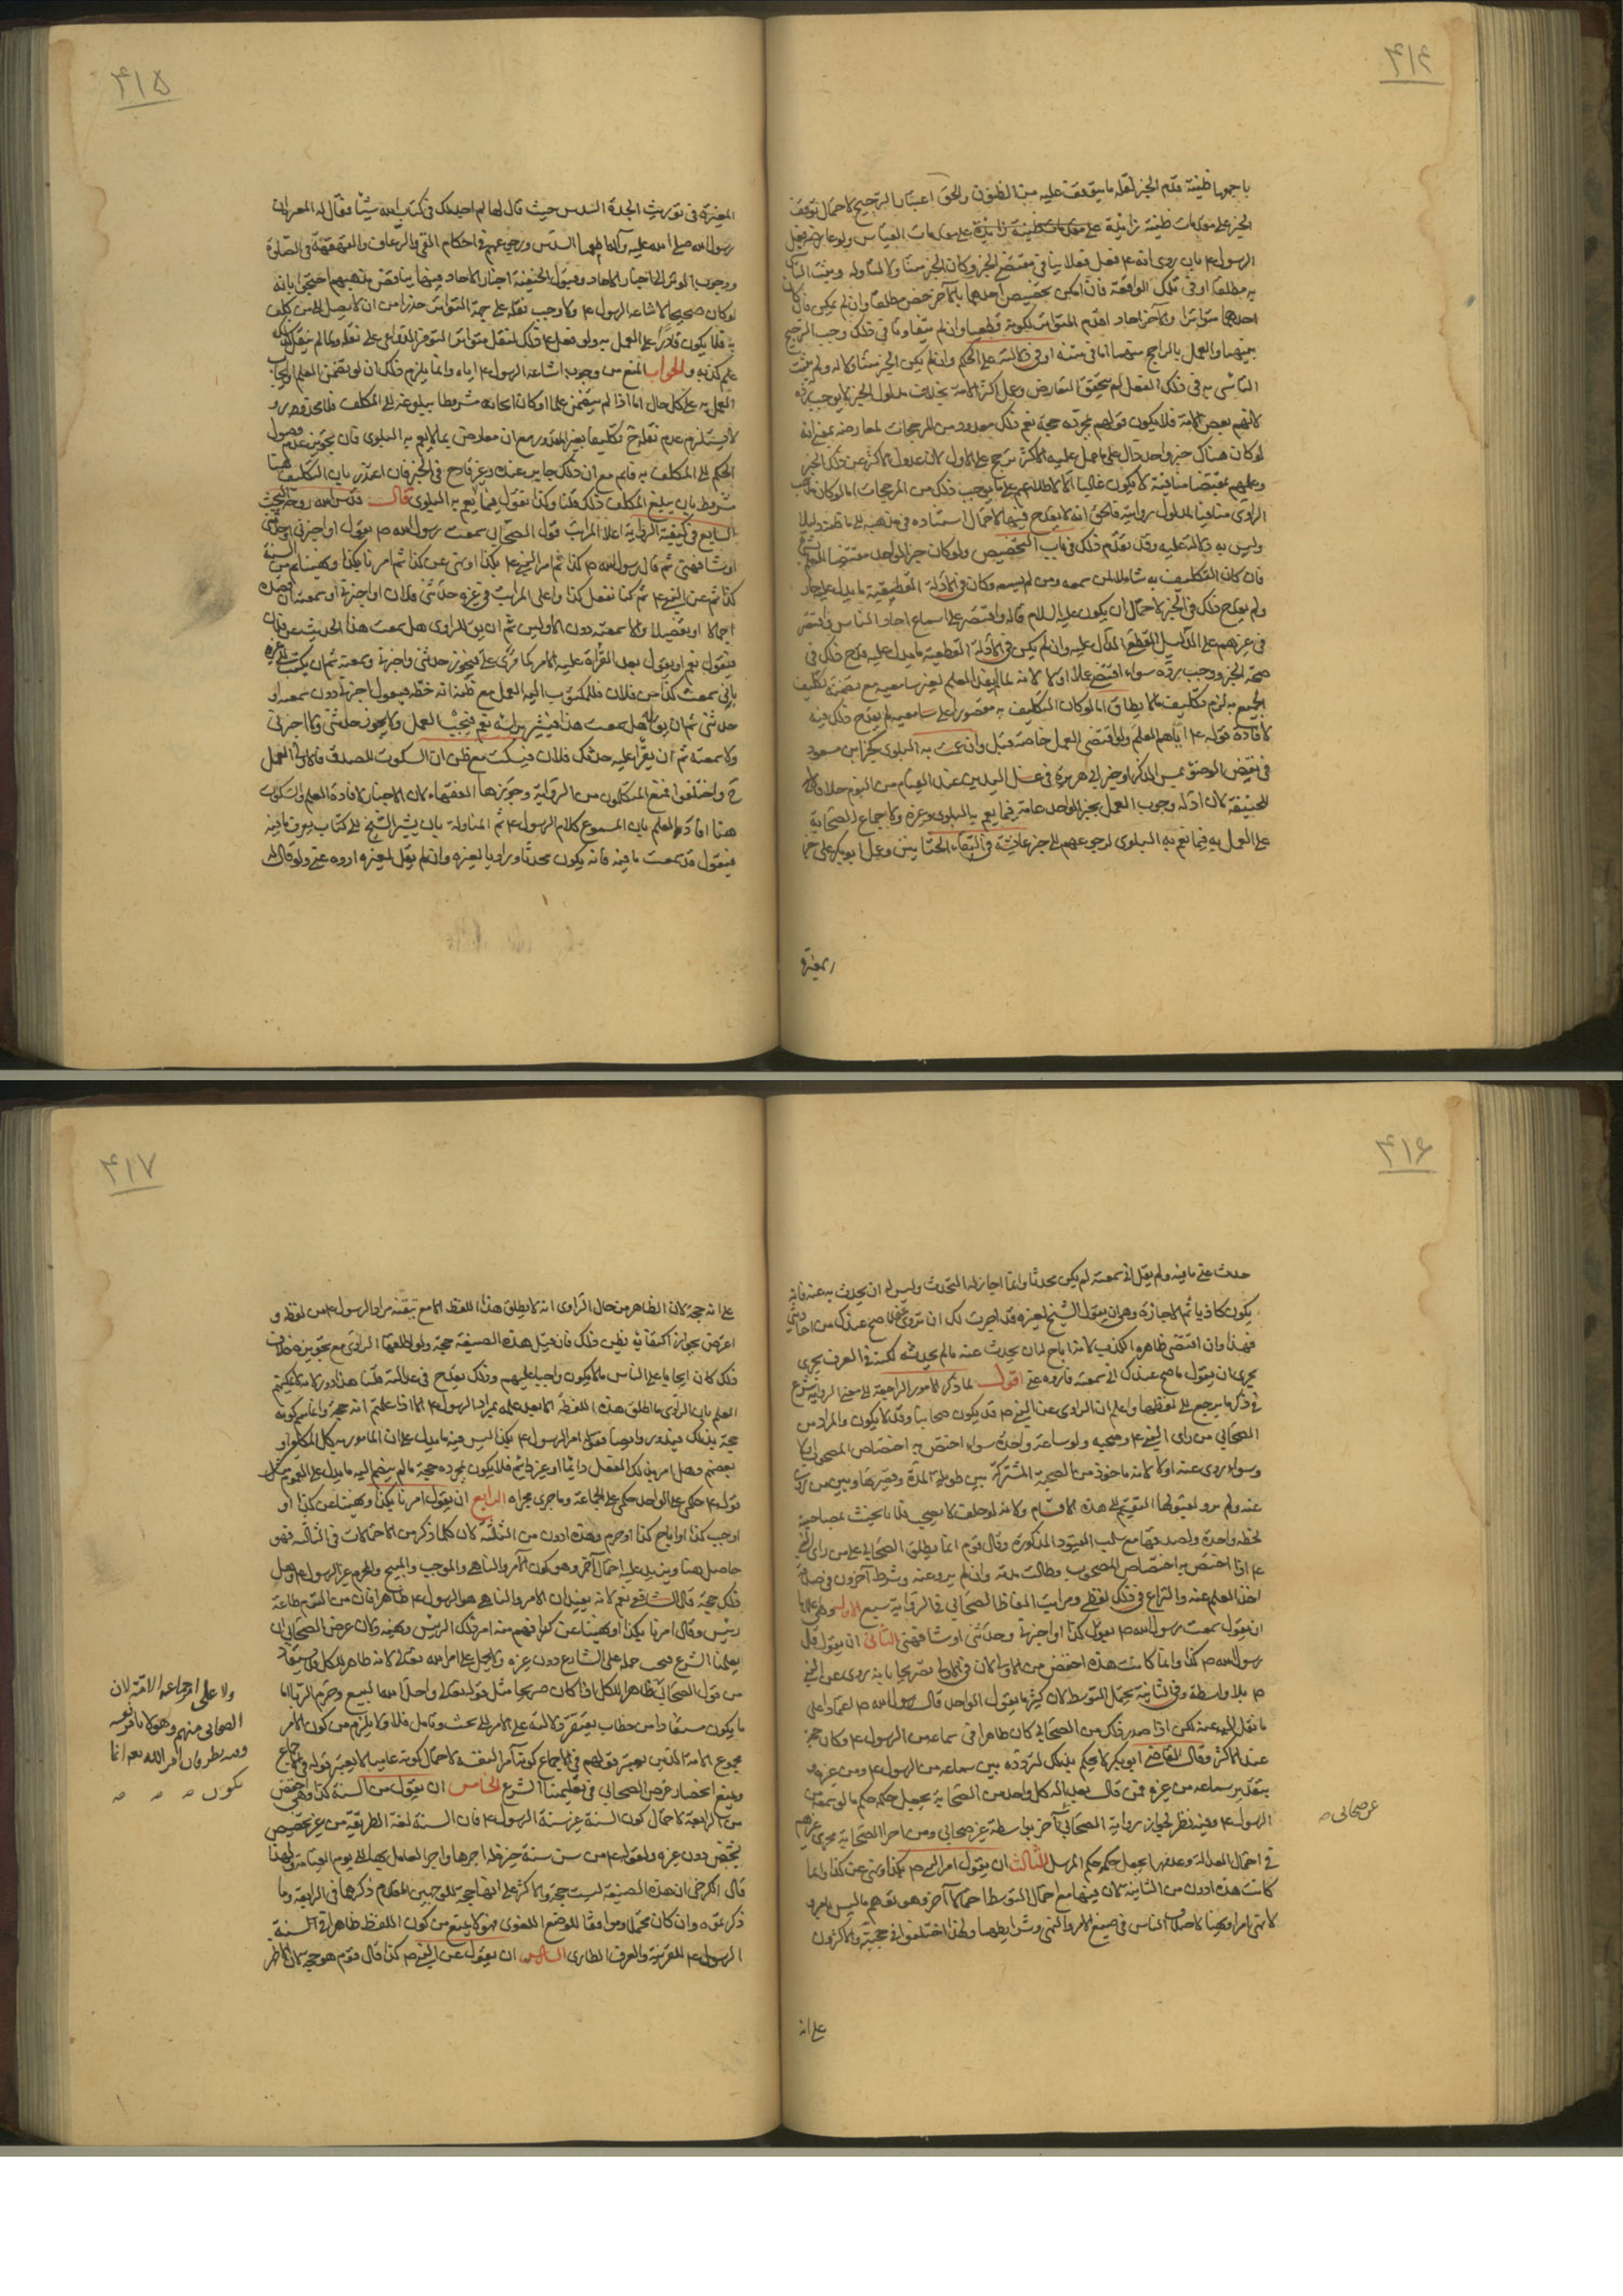 ۴۱۴
باجمعها ظنية قدم الخبر لقلة ما يتوقف عليه من الظنون والحق اعتبار الترجيح لاحتمال توقف
الخبر على مقدمات ظنية زايدة على مقدمات القياس ولو عارضه فعل
الرسول ۴ بان روى انه ۴ فعل فعلا ينافى مقتضى الخبر وكان الخبر متناولا له وثبت التأسى
به مطلقا او فى تلك الواقعة فان امكن تخصيص احدهما بالآخر خص مطلقا وان لم يكن فان كان
احدهما متواترا والآخر احاد اقدم المتواتر لكونه قطعيا وان لم يتفاوتا فى ذلك وجب الترجيح
بينهما والعمل بالراجح منهما اما فى متنه او فى دلالته على الحكم وان لم يكن الخبر متناولا له ولم يثبت
التأسى به فى ذلك الفعل لم يتحقق التعارض وعمل اكثر الامة بخلاف مدلول الخبر لا يوجب رده
لانهم بعض الامة فلا يكون قولهم بمجرده حجة نعم ذلك معدود من المرجحات لمعارضه بمعنى انه
لو كان هناك خبر واحد دال على ما عمل عليه الاكثر ترجح على الاول لان عدول الاكثر عن ذلك الخبر
وعملهم بمقتضى منافيه لا يكون غالبا الا لاطلاعهم على ما يوجب ذلك من المرجحات اما لو كان مذهب
الراوى منافيا لمدلول روايته فالحق انه لا يقدح فيها لاحتمال استناده فى مذهبه الى ما ظنه دليلا
وليس به دلالة عليه وقد تقدم ذلك فى باب التخصيص ولو كان خبر الواحد مقتضيا للعلم
فان كان التكليف به شاملا لمن سمعه ومن لم يسمعه وكان فى الادلة القطعية ما يدل عليه جاز
ولم يقدح ذلك فى الخبر لاحتمال ان يكون عليه السلام قاله واقتصر على اسماع احاد الناس واقتصر
فى غيرهم على الدليل القطعى الدال عليه وان لم يكن فى الادلة القطعية ما يدل عليه قدح ذلك فى
صحة الخبر ووجب رده سواء اقتضى عملا او لا لانه لما لم يفد العلم لغير سامعيه مع تضمنه تكليف
الجميع به لزم تكليف ما لا يطاق اما لو كان التكليف به مقصورا على سامعيه لم يقدح ذلك فيه
لافادة قوله ۴ اياهم العلم ولو اقتضى العمل خاصة قبل وان عمت به البلوى كخبر ابن مسعود
فى نقض الوضوء بمس الذكر او خبر ابى هريرة فى غسل اليدين عند القيام من النوم خلافا
للحنيفة لان ادلة وجوب العمل بخبر الواحد عامة فيما يعم به البلوى وغيره ولاجماع الصحابة
على العمل به فيما تعم به البلوى لرجوعهم الى خبر عائشة فى التقاء الختانين وعمل ابو بكر على خبر
المغيرة
۴۱۵
المغيرة فى توريث الجدة السدس حيث قال لها لم اجد لك فى كتاب الله شيئا فقال له المغيرة ان
رسول الله صلى الله عليه وآله اطعمها السدس ورجوعهم فى احكام القى والرعاف والقهقهة فى الصلوة
ووجوب الوتر الى اخبار الاحاد وقبول الحنيفة اخبار الاحاد فيها يناقض مذهبهم احتجوا بانه
لو كان صحيحا لاشاعه الرسول ۴ ولاوجب نقله على جهة التواتر حذرا من ان لا يصل الى من كلف
به فلا يكون قادرا على العمل به ولو فعل ۴ ذلك لنقل متواترا لتوفر الدواعى على نقله ولما لم ينقل كذلك
علم كذبه والجواب المنع من وجوب اشاعة الرسول ۴ اياه وانما يلزم ذلك ان لو تضمن العلم او ايجاب
العمل به على كل حال اما اذا لم يتضمن علما او كان ايجابه مشروطا ببلوغه الى المكلف فلا محذور
لا يستلزم عدم نقله ح تكليفا بغير المقدور مع انه معارض بما لا يعم به البلوى فان تجويز عدم وصول
الحكم الى المكلف به قائم مع ان ذلك جايز عندك وغير قادح فى الخبر فان اعتذر بان التكليف هنا
مشروط بان يبلغ المكلف ذلك قلنا وكذا نقول فيما يعم به البلوى قال قدس الله روحه البحث
السابع فى كيفية الرواية اعلا المراتب قول الصحابى سمعت رسول الله ص يقول او اخبرنى او حدثنى
او شافهنى ثم قال رسول الله ص كذا ثم امر النبى ۴ بكذا او نهى عن كذا ثم امرنا بكذا ونهينا ثم من السنة
كذا ثم عن النبى ۴ ثم كنا نفعل كذا واعلى المراتب فى غيره حدثنى فلان او اخبرنى او سمعته ان قصده
اجمالا او تفصيلا والا سمعته دون الاولين ثم ان يق للراوى هل سمعت هذا الحديث عن فلان
فيقول نعم او يقول بعد القراءة عليه الامر كما قرئ على فيجوز حدثنى واخبرنى وسمعته ثم ان يكتب الى غيره
بانى سمعت كذا من فلان فللمكتوب اليه العمل مع ظنه انه خطه فيقول اخبرنى دون سمعت او
حدثنى ثم ان يق له هل سمعت هذا فيشير براسه نعم فيجب العمل ولا يجوز حدثنى ولا اخبرنى
ولا سمعته ثم ان يقرأ عليه حدثك فلان فيسكت مع ظن ان السكوت للصدق فالاولى العمل
ح واختلفوا فمنع المتكلمون من الرواية وجوزها الفقهاء لان الاخبار لافادة العلم والسكوت
هنا افاد العلم بان المسموع كلام الرسول ۴ ثم المناولة بان يشير الشيخ الى كتاب يعرف ما فيه
فيقول قد سمعت ما فيه فانه يكون محدثا وراويا لغيره وان لم يقل لغيره اروه عنى ولو قال له
۴۱۶
حدث عنى ما فيه ولم يقل انى سمعته لم يكن محدثا وانما اجاز له التحدث وليس له ان يحدث به عنه فانه
يكون كاذبا ثم الاجازة وهى ان يقول الشيخ لغيره قد اجزت لك ان تروى عنى ما صح عندك من احاديثى
فهذا وان اقتضى ظاهره الكذب لانه اباح له ان يحدث عنه بما لم يحدثه لكنه فى العرف يجرى
مجرى ان يقول ما صح عندك انى سمعته فاروه عنى اقول لما ذكر الامور الراجعة الى معنى الرواية شرع
فى ذكر ما يرجع الى لفظها واعلم ان الراوى عن النبى ص قد يكون صحابيا وقد لا يكون والمراد من
الصحابى من راى النبى ۴ وصحبه ولو ساعة واحدة سواء اختص به اختصاص المصحوب او لا
وسواء روى عنه او لا لانه ماخوذ من الصحبة المشتركة بين طويلة المدة وقصيرها وبين من روى
عنه ولم يرو لقبولها التقسيم الى هذه الاقسام ولانه لو حلف لا يصحب فلانا يحنث بمصاحبته
لحظة واحدة ولصدقها مع سلب القيود المذكورة وقال قوم انما يطلق الصحابى على من راى النبى
۴ اذا اختص به اختصاص المصحوب وطالت مدته وان لم يرو عنه وشرط آخرون فى صدقه
اخذ العلم عنه والنزاع فى ذلك لفظى ومراتب الفاظ الصحابى فى الرواية سبع الاولى وهى اعلاها
ان يقول سمعت رسول الله ص يقول كذا او اخبرنى وحدثنى او شافهنى الثانى ان يقول قال
رسول الله ص كذا وانما كانت هذه اخفض من الاولى لان فى الاولى تصريحا بانه يروى عن النبى
ص بلا واسطة وفى الثانية يحتمل التوسط لان كثيرا ما يقول الواحد قال رسول الله ص اعتمادا على
ما نقل اليه عنه لكن اذا صدر ذلك من الصحابى كان ظاهرا فى سماعه من الرسول ۴ وكان حجة
عند الاكثر وقال القاضى ابو بكر لا يحكم بذلك لتردده بين سماعه من الرسول ۴ ومن غيره
بتقدير سماعه من غيره فمن قال بعدالة كل واحد من الصحابة يجعل حكمه حكم ما لو سمعه من
الرسول ۴ وفيه نظر لجواز رواية الصحابى آخر بواسطة غير صحابى ومن اجرا الصحابة مجرى غيرهم
عن صحابى ص
فى احتمال العدالة وعدمها يجعل حكمه حكم المرسل الثالث ان يقول امر النبى ص بكذا ونهى عن كذا وانما
كانت هذه ادون من الثانية لان فيها مع احتمال التوسط احتمالا آخر وهو توهم ما ليس بامر ولا
لا نهى امرا ونهيا لاختلاف الناس فى صيغ الامر والنهى وشرايطهما ولهذا اختلفوا فى حجيته والاكثرون
على انه
۴۱۷
على انه حجة لان الظاهر من حال الراوى انه لا يطلق هذا اللفظ الا مع تيقنه مراد الرسول ۴ من لفظه و
اعترض بجواز اكتفائه بظن ذلك فان قيل هذه الصيغة حجة ولو اطلقها الراوى مع تجويزه خلاف
ذلك لكان ايجابا على الناس ما لا يكون واجبا عليهم وذلك يقدح فى عدالته قلنا هذا دور لانه لا يمكنكم
العلم بان الراوى ما اطلق هذه اللفظة الا بعد علمه بمراد الرسول ۴ الا اذا علمتم انه حجة وانما يثبت كونه
حجة بذلك فيدور وايضا فقوله امر الرسول ۴ بكذا ليس فيه ما يدل على ان المامور به كل المكلفين او
بعضهم وهل امر بذلك الفعل دائما او غير دائم فلا يكون بمجرده حجة ما لم ينضم اليه ما يدل على التعميم مثل
قوله ۴ حكمى على الواحد حكمى على الجماعة وما جرى مجراه الرابع ان يقول امرنا بكذا ونهينا عن كذا او
اوجب كذا او اباح كذا او حرم وهذه ادون من الثلثة لان كلما ذكر من الاحتمالات فى الثالثة فهو
حاصل هنا ويزيد عليه احتمال آخر وهو كون الآمر والناهى والموجب والمبيح والمحرم غير الرسول ۴ وهل
ذلك حجة قال الشافعى نعم لانه يفيد ان الامر والناهى هو الرسول ۴ ظاهرا فان من التزم طاعة
رئيس وقال امرنا بكذا او نهينا عن كذا فهم منه امر ذلك الرئيس ونهيه ولان غرض الصحابى ان
يعلمنا الشرع فيجب حمله على الشارع دون غيره ولا يحمل على امر الله تعالى لانه ظاهر للكل ولا يستفاد
من قول الصحابى ظاهرا للكل اذا كان صريحا مثل قوله تعالى واحل الله البيع وحرم الربا اما
ولا على اجماعه الامة لان
الصحابى منهم وهو لا يامر نفسه
وفيه نظر فان امر الله تعالى انما
يكون ص ص ص
ما يكون مستفادا من خطاب يفتقر دلالته على الامر الى بحث وتامل فلا ولا يلزم من كون الآمر
مجموع الامة الذين يعتبر قولهم فى الاجماع كونه آمرا لنفسه لاحتمال كونه عاميا لا يعتبر قوله فى الاجماع
ويمنع انحصار غرض الصحابى فى تعليمنا الشرع الخامس ان يقول من السنة كذا وهى اخفض
من الرابعة لاحتمال كون السنة غير سنة الرسول ۴ فان السنة لغة الطريقة من غير تخصيص
بشخص دون غيره ولقوله ۴ من سن سنة حسنة فله اجرها واجر العامل بها الى يوم القيامة ولهذا
قال الكرخى ان هذه الصيغة ليست حجة والاكثر على انها حجة للوجهين المتقدم ذكرهما فى الرابعة وما
ذكرتموه وان كان محتملا وموافقا للوضع اللغوى فهو لا يمنع من كون اللفظ ظاهرا فى سنة
الرسول ۴ للقرينة والعرف الطارى السادس ان يقول عن النبى ص كذا قال قوم هو حجة لان الظاهر